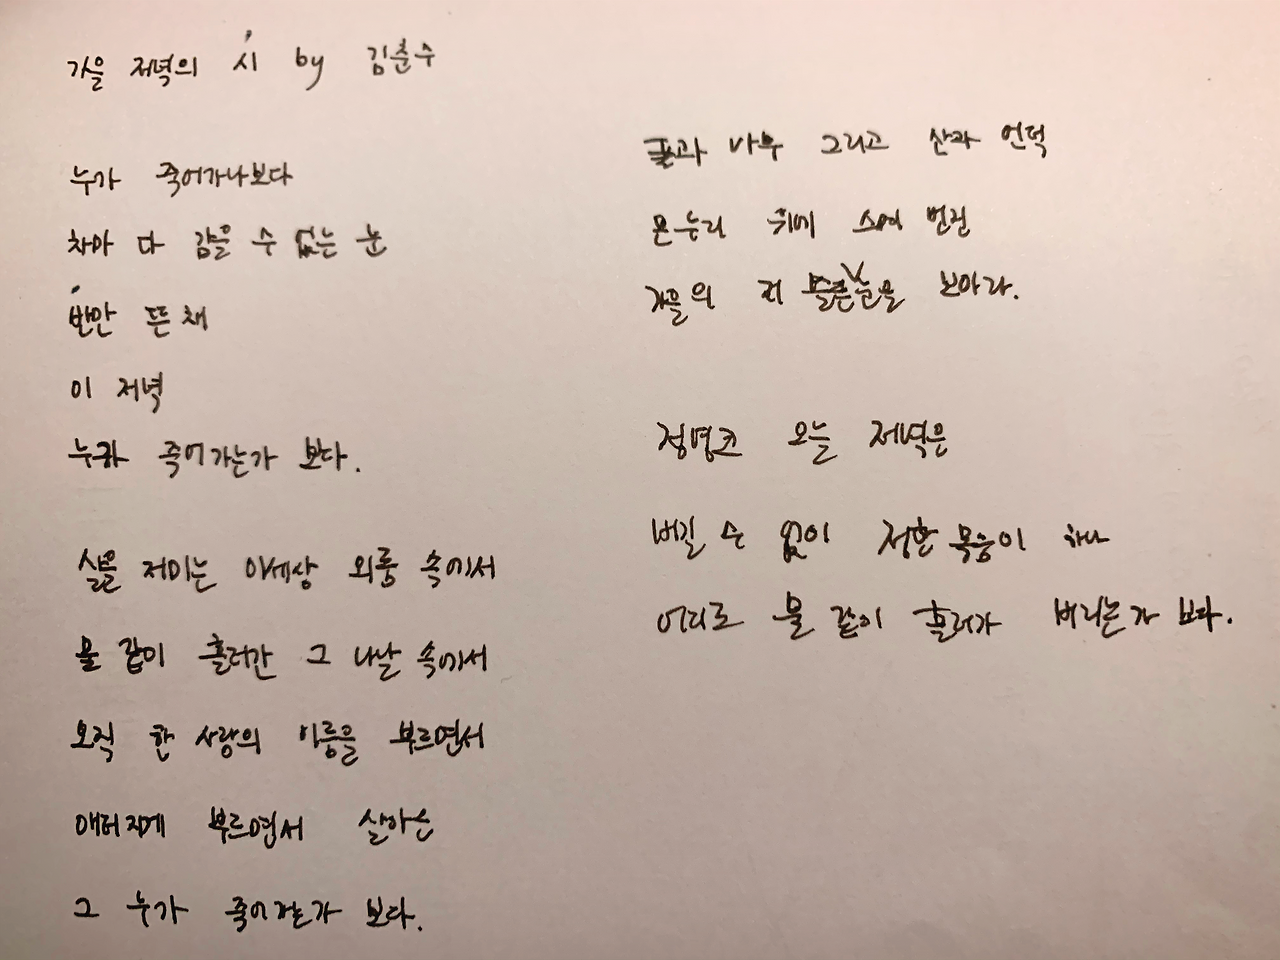 가을 저녁의 시 by 김춘수
누가 죽어가나보다
차마 다 감을 수 없는 눈
반만 뜬 채
이 저녁
누가 죽어가는가 보다.
살을 저미는 이세상 외롬 속에서
물 같이 흘러간 그 나날 속에서
오직 한 사람의 이름을 부르면서
애터지게 부르면서 살아온
그 누가 죽어가는가 보다.
풀과 나무 그리고 산과 언덕
온누리 위에 스며 번진
가을의 저 슬픈 눈을 보아라.
정녕코 오늘 저녁은
비길 수 없이 정한 목숨이 하나
어디로 물 같이 흘러가 버리는가 보다.